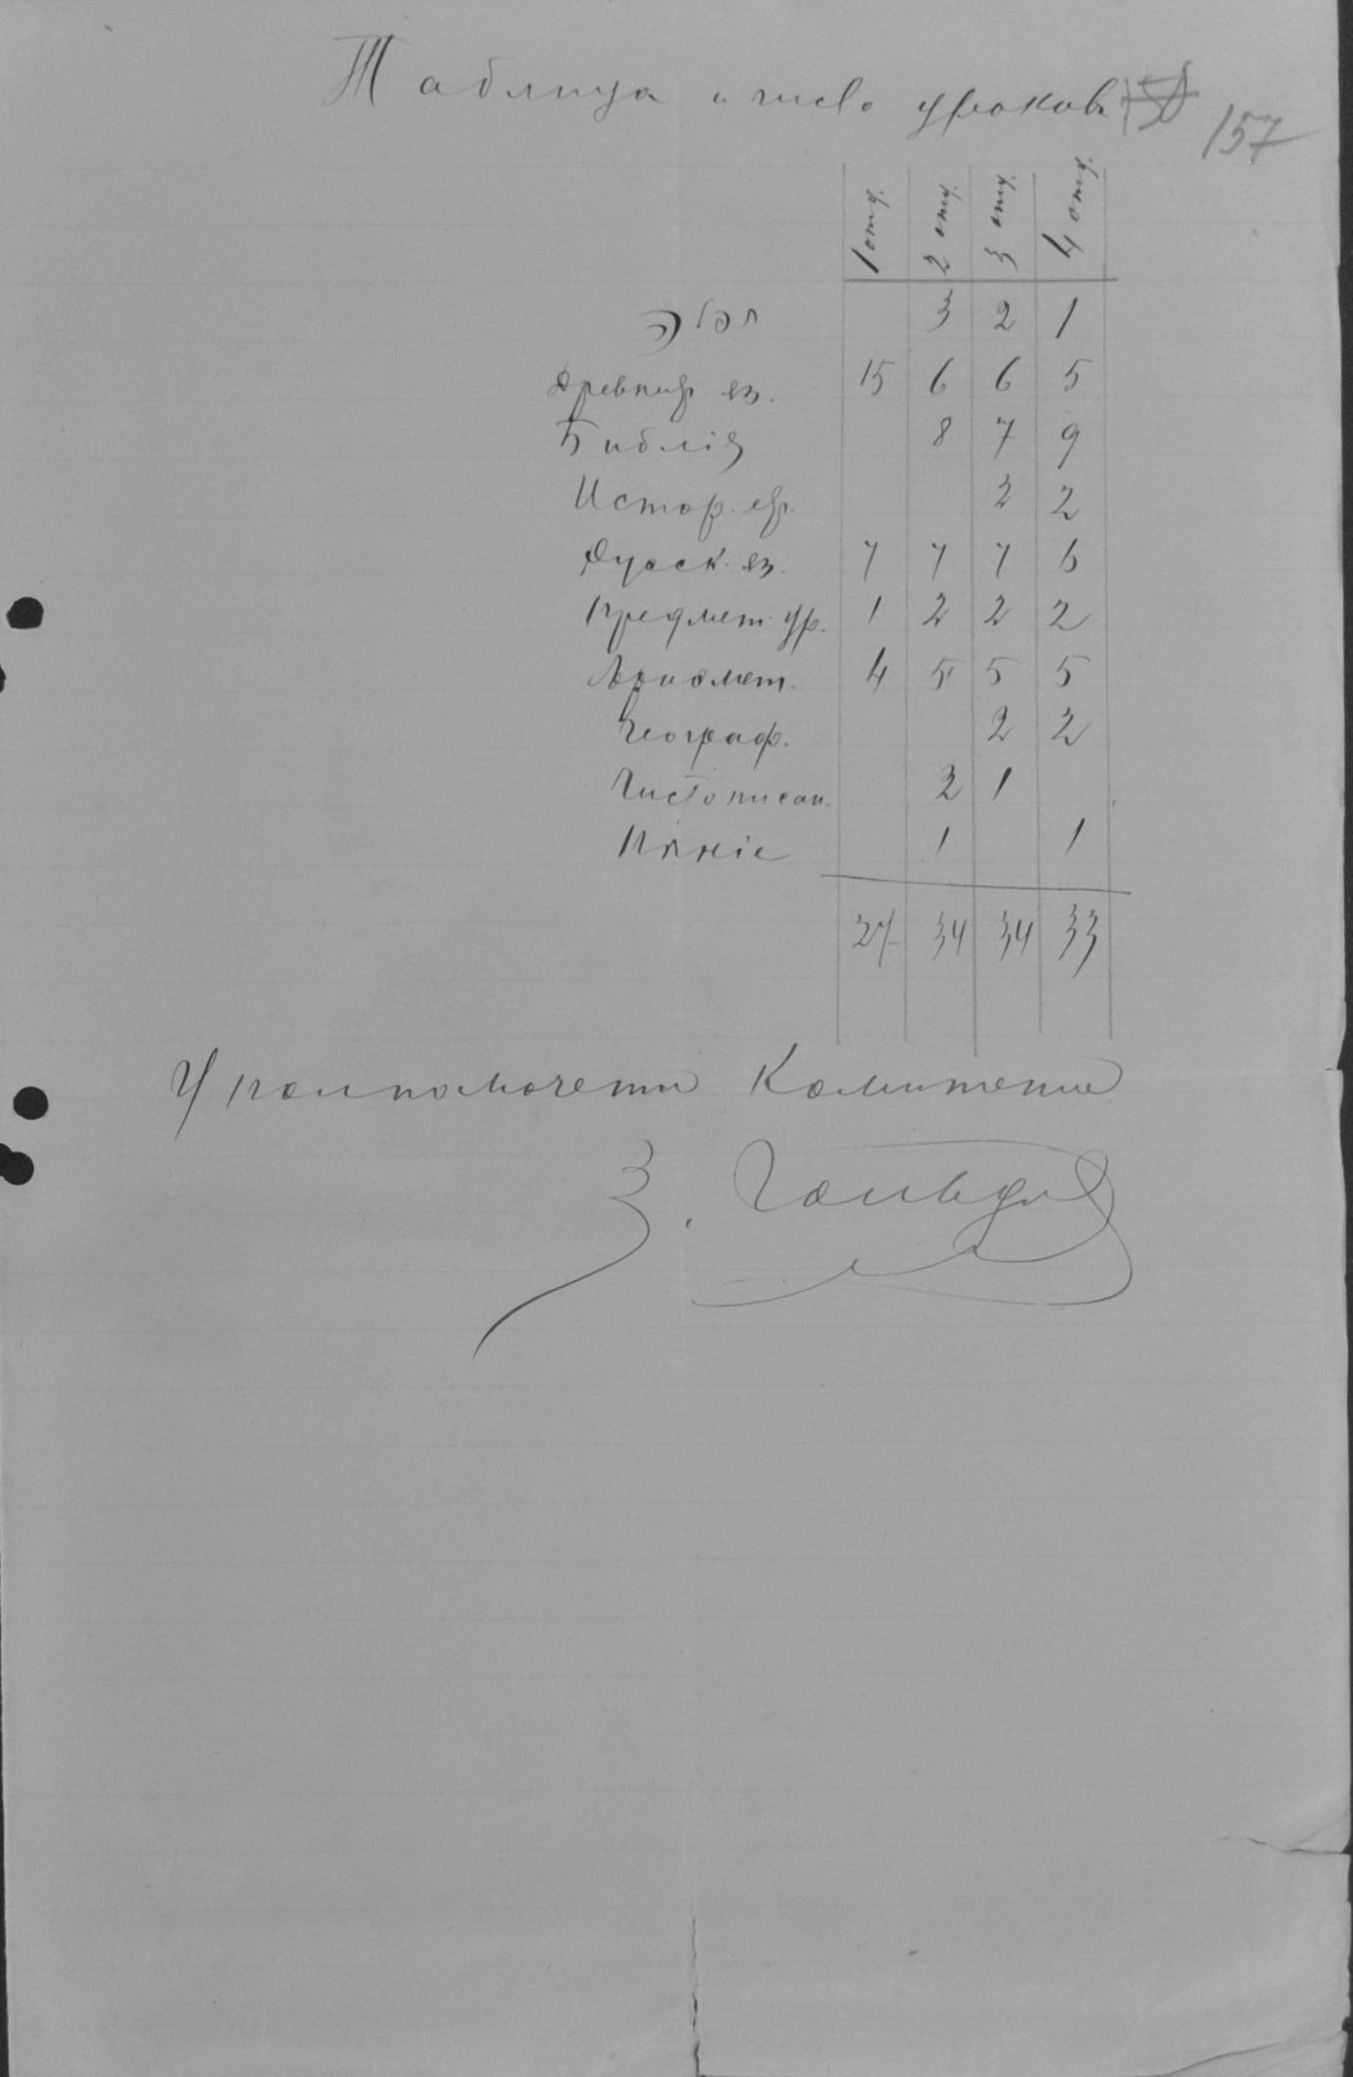 Таблица и число уроковъ
157
1 отд. 2 отд. 3 отд. 4 отд.
תפלה 3 2 1
Древнеевр. яз. 15 6 6 5
Библія 8 7 9
Истор. евр. 2 2
Русск. яз. 7 7 7 6
Предмет. ур. 1 2 2 2
Арифмет. 4 5 5 5
Географ. 2 2
Чистописан. 2 1
Пѣніе 1 1
27 34 34 33
Уполномочены Комитетомъ
З.